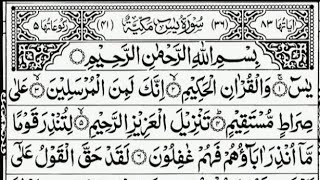 اٰیاتها ۸۳ (۳۶) سُوْرَةُ یٰسٓ مَكِّیَّةٌ (۴۱) رکوعاتها ۵
بِسْمِ اللّٰهِ الرَّحْمٰنِ الرَّحِیْمِ
یٰسٓ ۚ﴿۱﴾ وَالْقُرْاٰنِ الْحَكِیْمِ ۙ﴿۲﴾ اِنَّكَ لَمِنَ الْمُرْسَلِیْنَ ۙ﴿۳﴾ عَلٰی
صِرَاطٍ مُّسْتَقِیْمٍ ؕ﴿۴﴾ تَنْزِیْلَ الْعَزِیْزِ الرَّحِیْمِ ۙ﴿۵﴾ لِتُنْذِرَ قَوْمًا
مَّاۤ اُنْذِرَ اٰبَآؤُهُمْ فَهُمْ غٰفِلُوْنَ ﴿۶﴾ لَقَدْ حَقَّ الْقَوْلُ عَلٰۤی